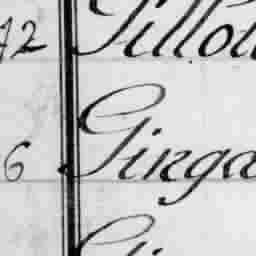 42 Gillot
6 Ginga